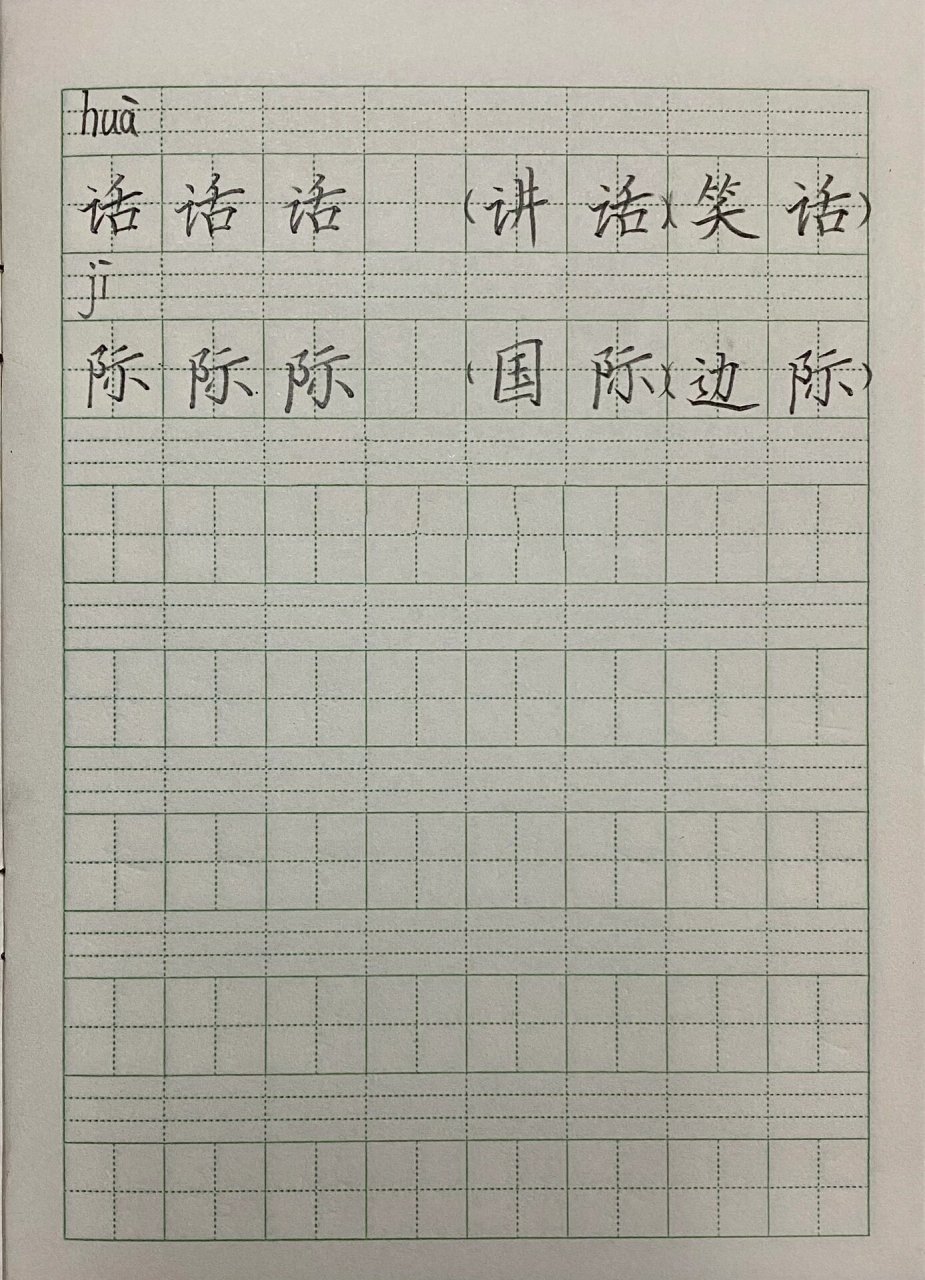 huà
话 话 话 (讲 话)(笑 话)
jī
际 际 际 (国 际)(边 际)